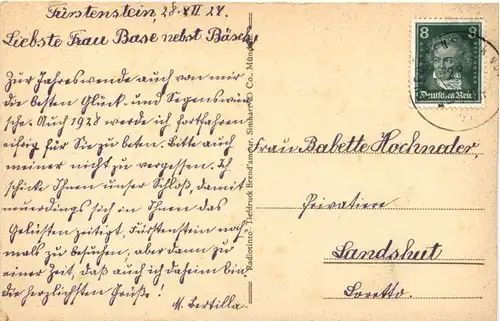 Fürstenstein 28. XII 27.
Liebste Frau Base nebst Bäsche
Zur Jahreswende auch von mir
die besten Glück- und Segenswün-
sche. Auch 1928 werde ich fortfahren
eifrig für Sie zu beten. Bitte auch
meiner nicht zu vergessen. Ich
schicke Ihnen unser Schloß, damit
neuerdings sich in Ihnen das
Gelüsten zeitigt, Fürstenstein noch-
mals zu besuchen, aber dann zu
einer Zeit, daß auch ich daheim bin
Die herzlichsten Grüße!
M. Bertilla.
Radiocinto, Tiefdruck Brend'amour, Simhart & Co., München
8 8
Deutsches Reich
Frau Babette Hochnader,
Privatiere
Landshut
Loretto.